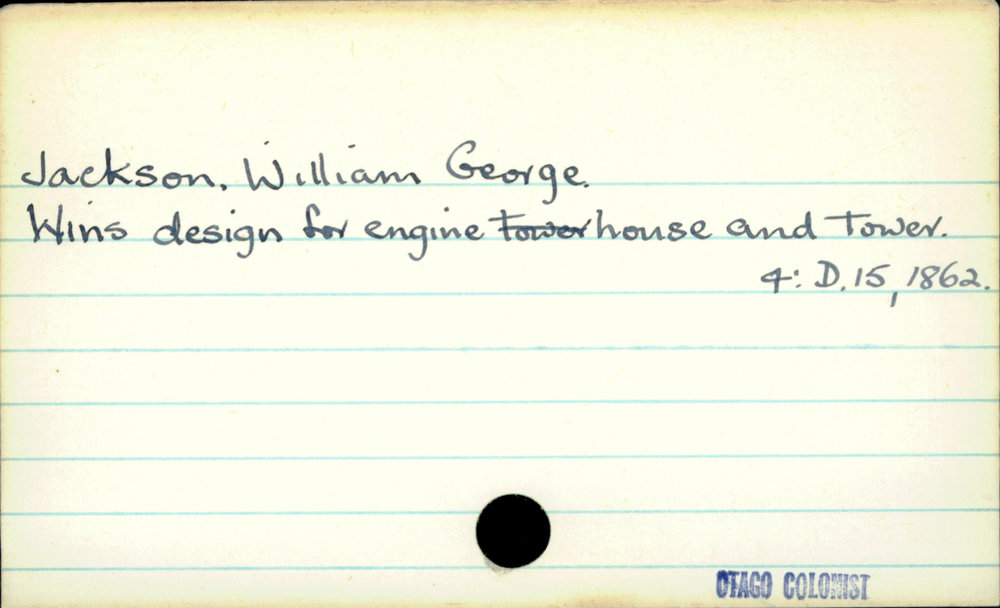 Jackson, William George.
Wins design for engine tower house and Tower.
4: D.15, 1862.
OTAGO COLONIST